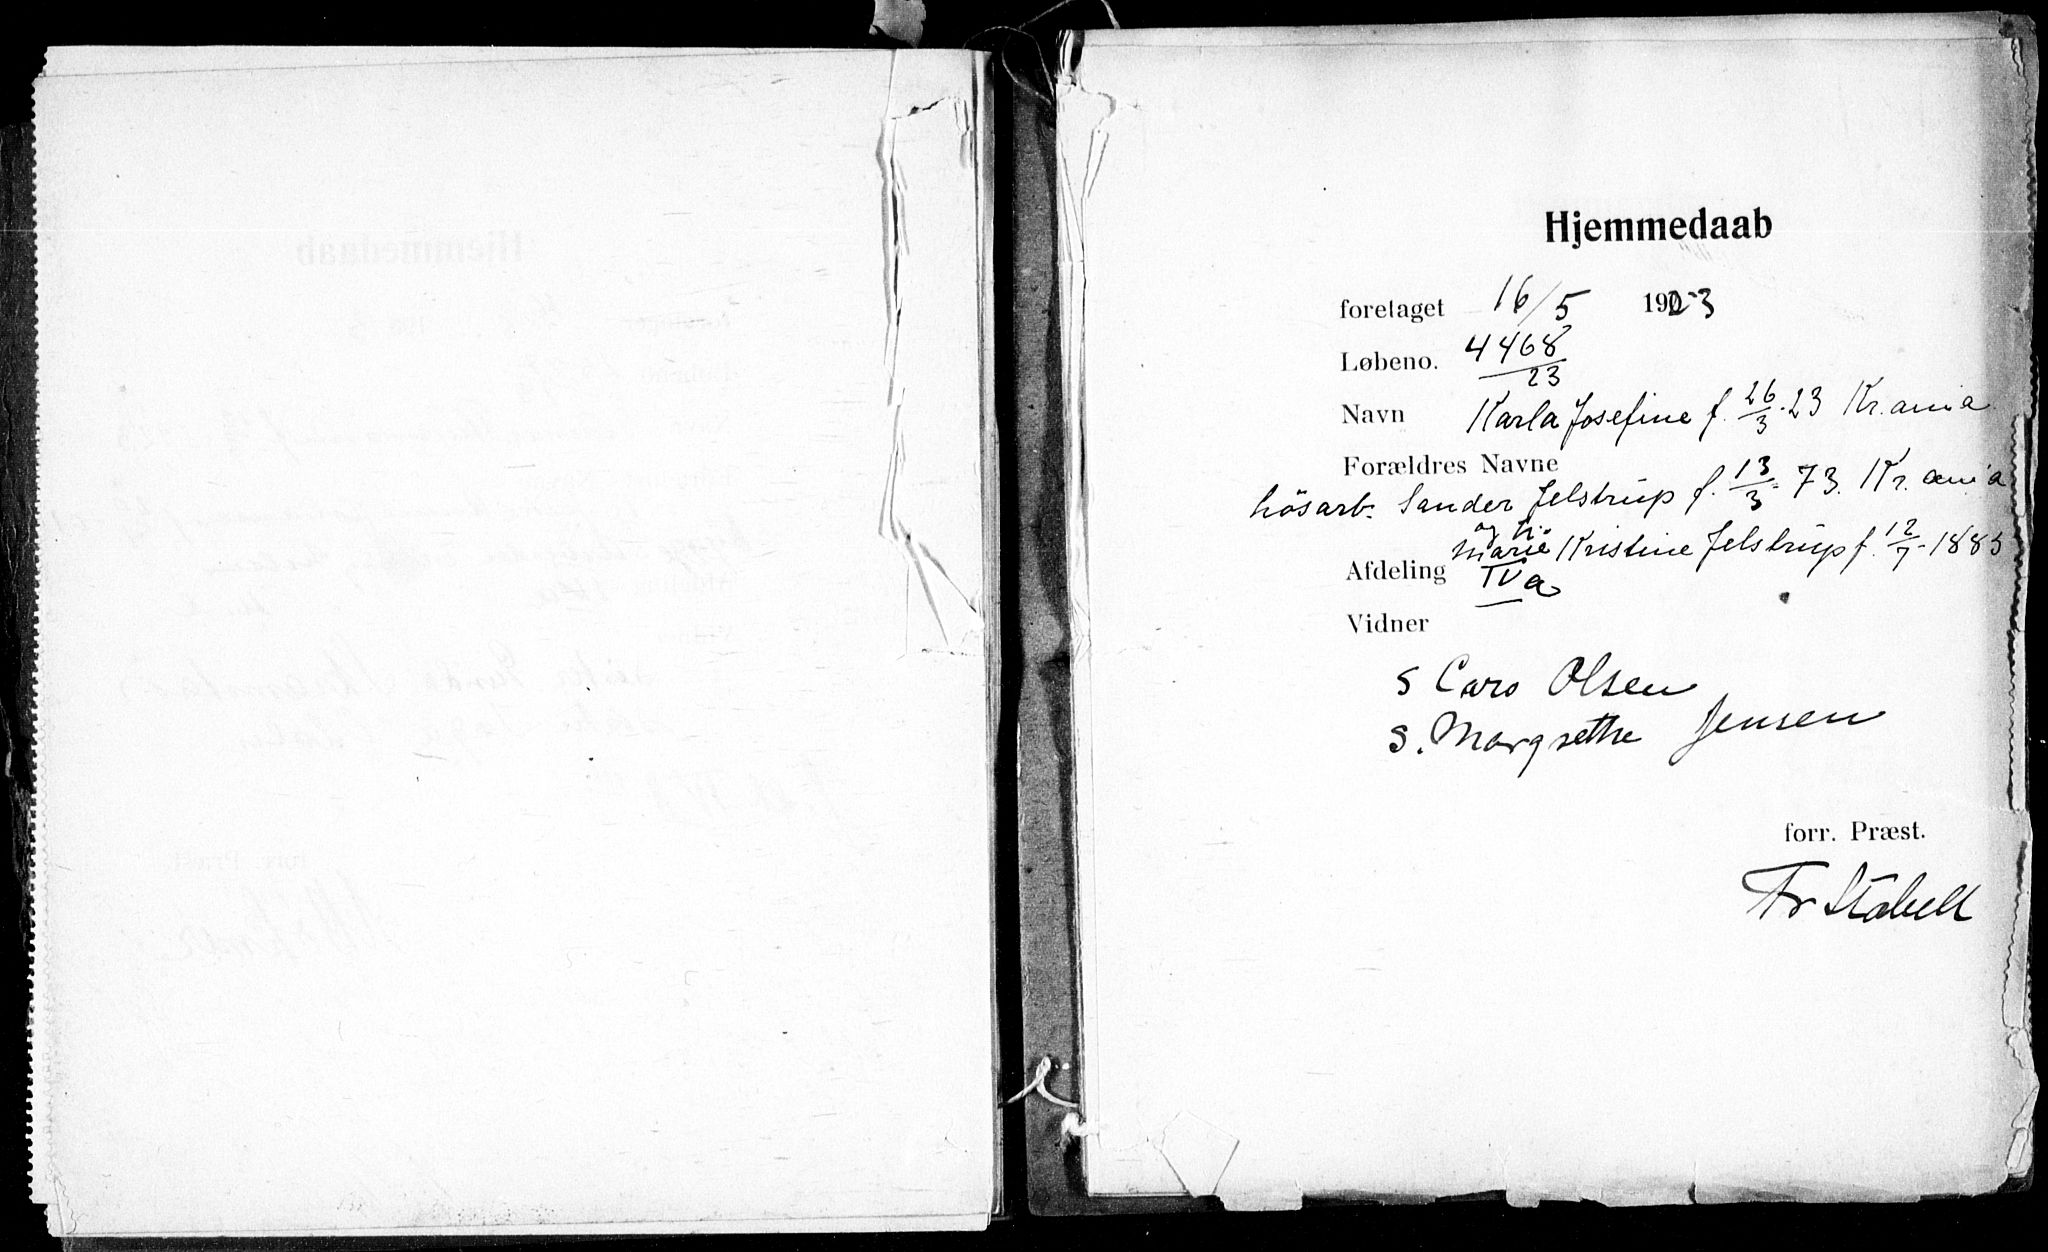 Hjemmedaab
foretaget 16/5 1923
Løbeno. 4468/23
Navn Karla Josefine f. 26/3-23 Kr.ania
Forældres Navne
løsarb. Sander Jelstrup f. 13/3-73. Kr.ania
og h.
Marie Kristine Jelstrup f. 12/7-1885
Afdeling IVa
Vidner
S Caro Olsen
S. Margrethe Jensen
forr. Præst.
Fr Stabell